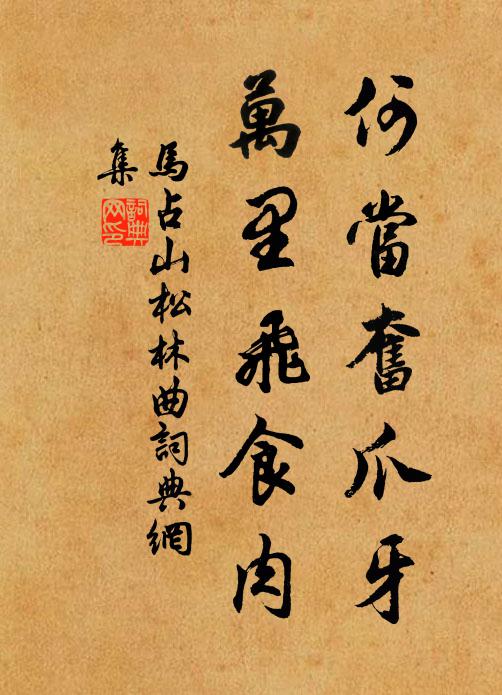 何當奮爪牙
萬里飛食肉
馬占山松林曲詞典網
集
詞典
网印